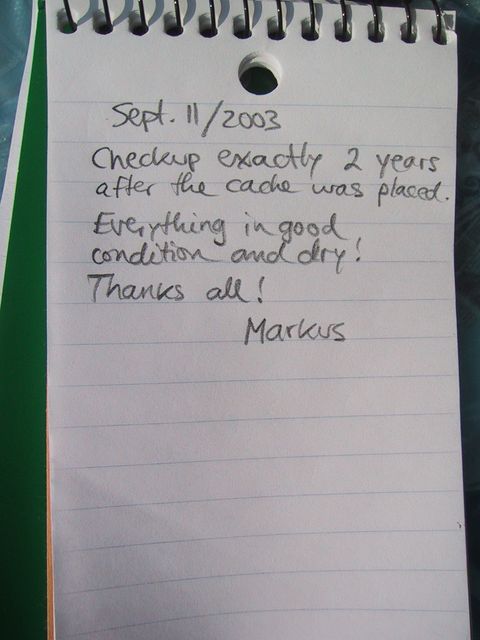 Sept. 11/2003
Checkup exactly 2 years
after the cache was placed.
Everything in good
condition and dry!
Thanks all!
Markus